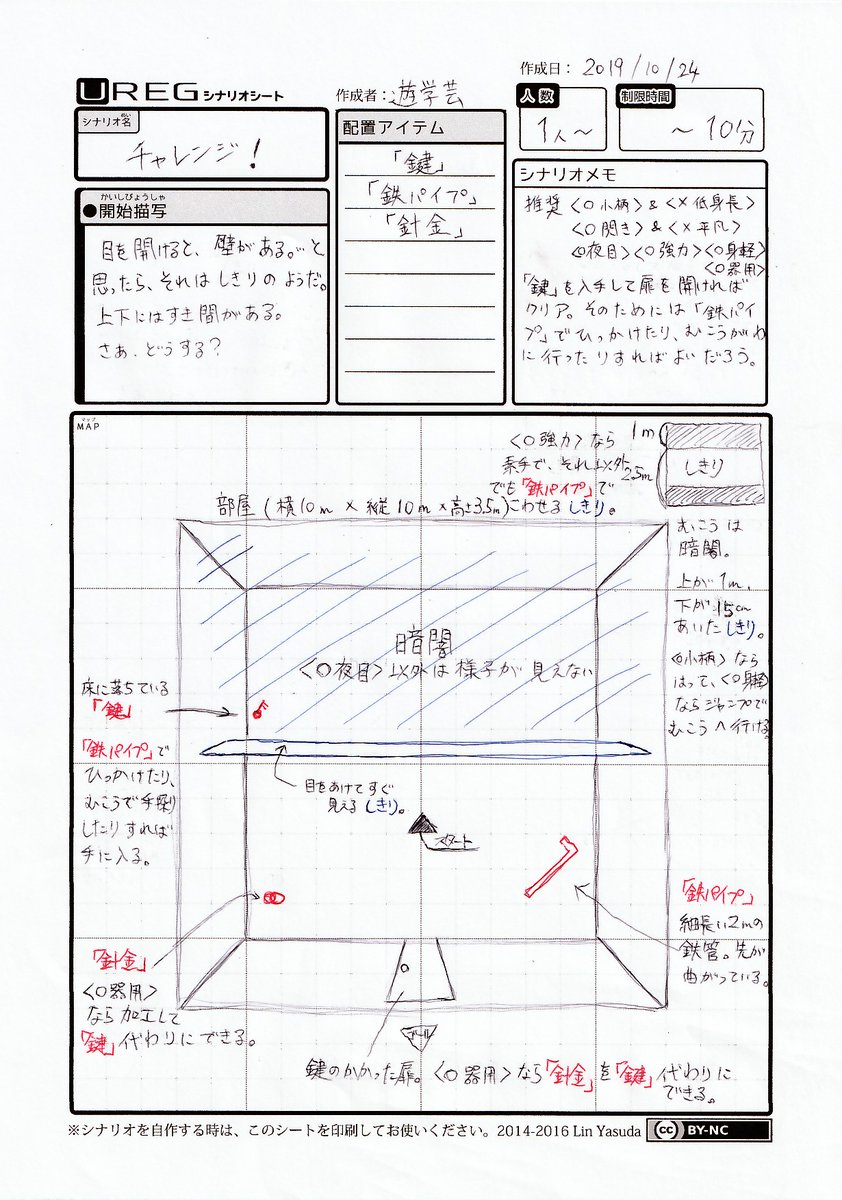 作成日： 2019/10/24
UREG シナリオシート
作成者：遊学芸
人数
1人～
制限時間
～10分
シナリオ名
チャレンジ！
配置アイテム
「鍵」
「鉄パイプ」
「針金」
かいしびょうしゃ
●開始描写
目を開けると、壁がある。…と
思ったら、それはしきりのようだ。
上下にはすき間がある。
さぁ、どうする？
シナリオメモ
推奨 〈○小柄〉&〈×低身長〉
〈○閃き〉&〈×平凡〉
〈○夜目〉〈○強力〉〈○身軽〉
〈○器用〉
「鍵」を入手して扉を開ければ
クリア。そのためには「鉄パイ
プ」でひっかけたり、むこうがわ
に行ったりすればよいだろう。
マップ
MAP
〈○強力〉なら
素手で、それ以外
でも「鉄パイプ」で
こわせるしきり。
1m
2.5m
しきり
部屋（横10m×縦10m×高さ3.5m）
むこうは
暗闇。
上が1m、
下が15cm
あいたしきり。
〈○小柄〉なら
はって、〈○身軽〉
ならジャンプで
むこうへ行ける。
暗闇
〈○夜目〉以外は様子が見えない
床に落ちている
「鍵」
「鉄パイプ」で
ひっかけたり、
むこうで手探り
したりすれば
手に入る。
目をあけてすぐ
見えるしきり。
スタート
「鉄パイプ」
細長い2mの
鉄管。先が
曲がっている。
「針金」
〈○器用〉
なら加工して
「鍵」代わりにできる。
ゴール
鍵のかかった扉。〈○器用〉なら「針金」を「鍵」代わりに
できる。
※シナリオを自作する時は、このシートを印刷してお使いください。2014-2016 Lin Yasuda
cc BY-NC